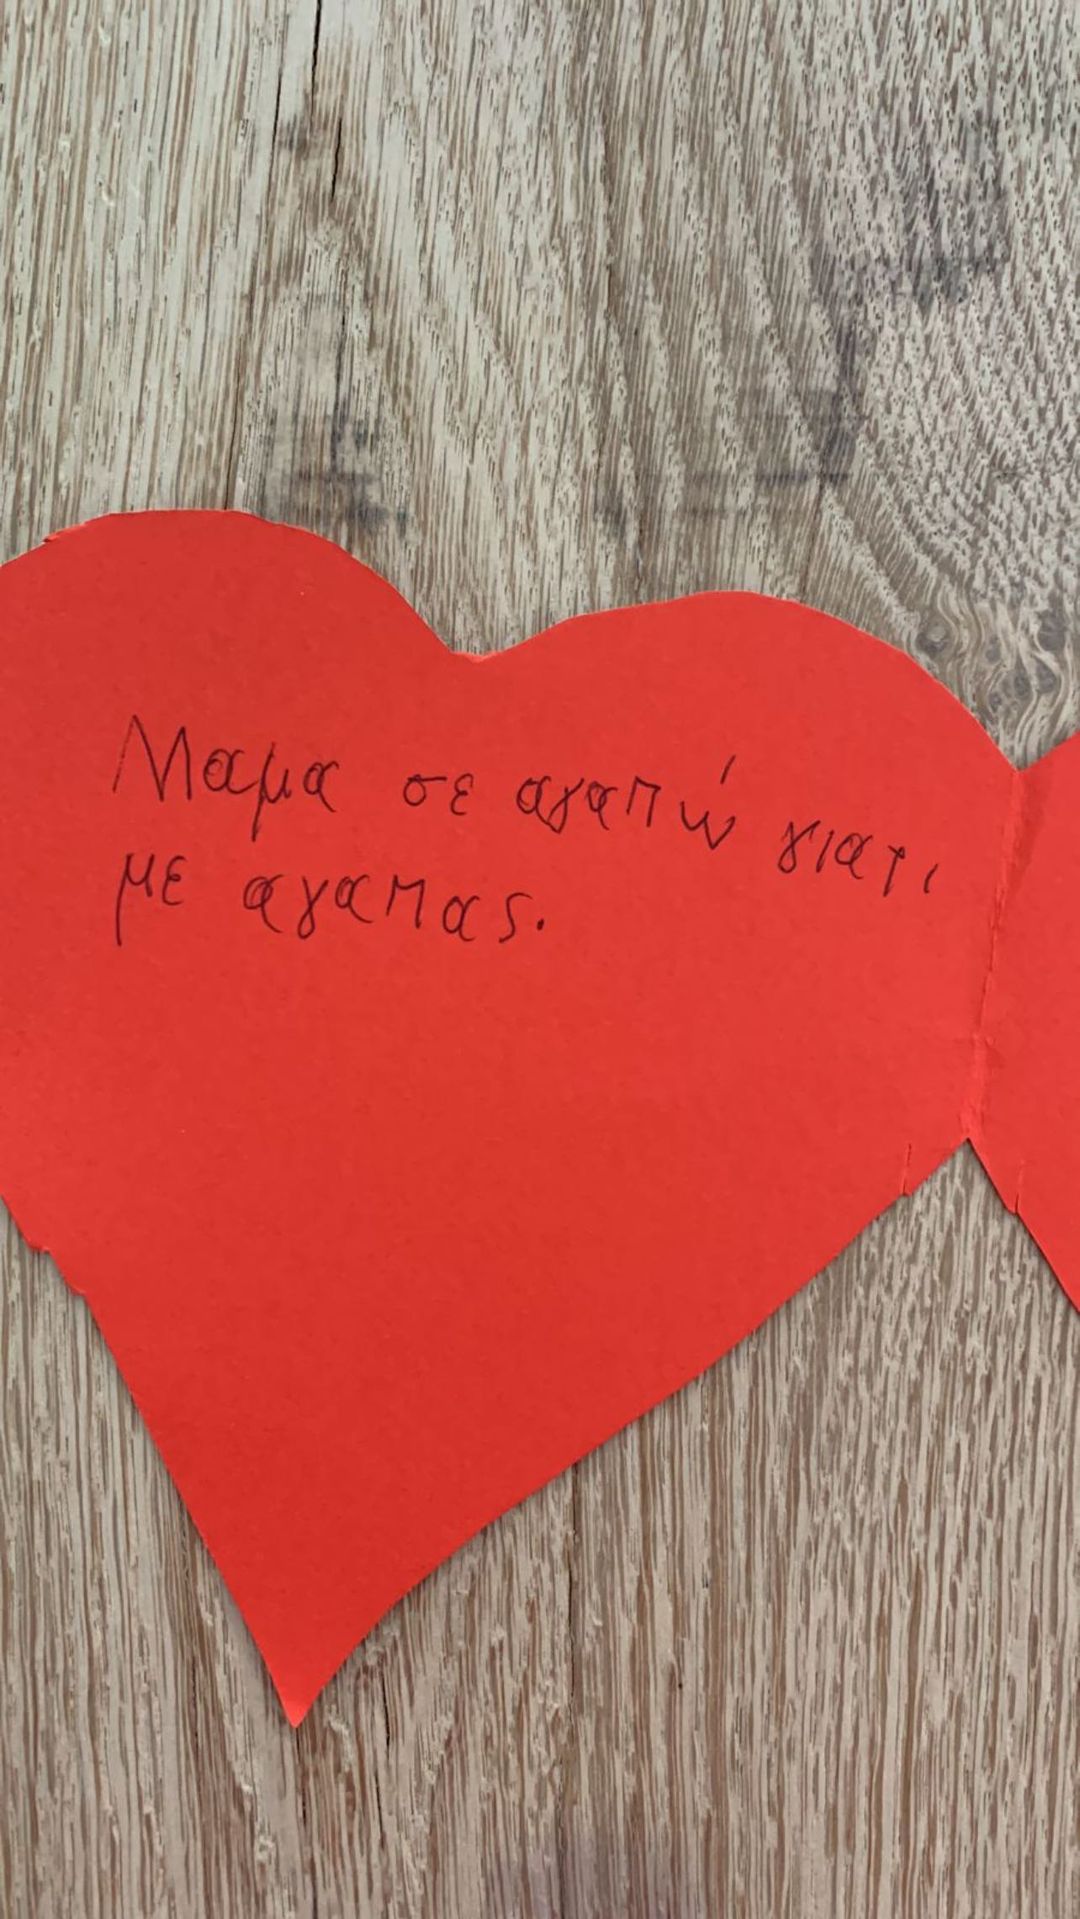 Μαμα σε αγαπώ γιατι
με αγαπας.